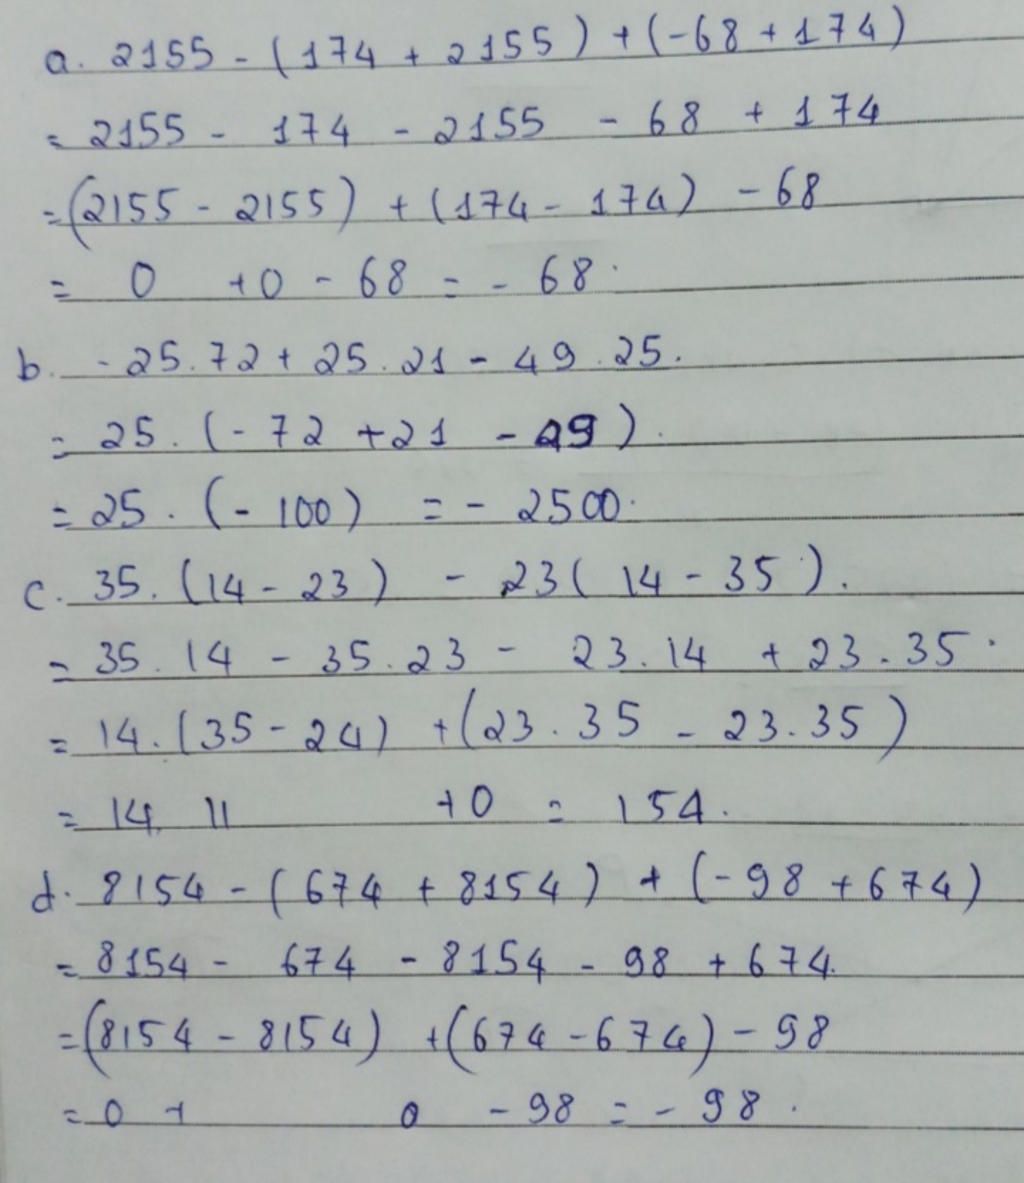 a. 2155 - (174 + 2155) + (-68 + 174)
= 2155 - 174 - 2155 - 68 + 174
= (2155 - 2155) + (174 - 174) - 68
= 0 + 0 - 68 = - 68.
b. - 25.72 + 25.21 - 49.25.
= 25. (- 72 + 21 - 49).
= 25. (- 100) = - 2500.
c. 35. (14 - 23) - 23( 14 - 35 ).
= 35.14 - 35.23 - 23.14 + 23.35.
= 14. (35 - 24) + (23.35 - 23.35)
= 14. 11 + 0 = 154.
d. 8154 - (674 + 8154) + (- 98 + 674)
= 8154 - 674 - 8154 - 98 + 674.
= (8154 - 8154) + (674 - 674) - 98
= 0 + 0 - 98 = - 98.